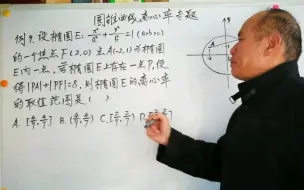 圆锥曲线离心率专题
例9. 设椭圆E: x²/a² + y²/b² =1 (a>b>0)
的一个焦点F(2,0)点A(-2,1)为椭圆
E内一点, 若椭圆E上存在一点P, 使
得|PA|+|PF|=8, 则椭圆E的离心率
的取值范围是( )
A. B. C. D.